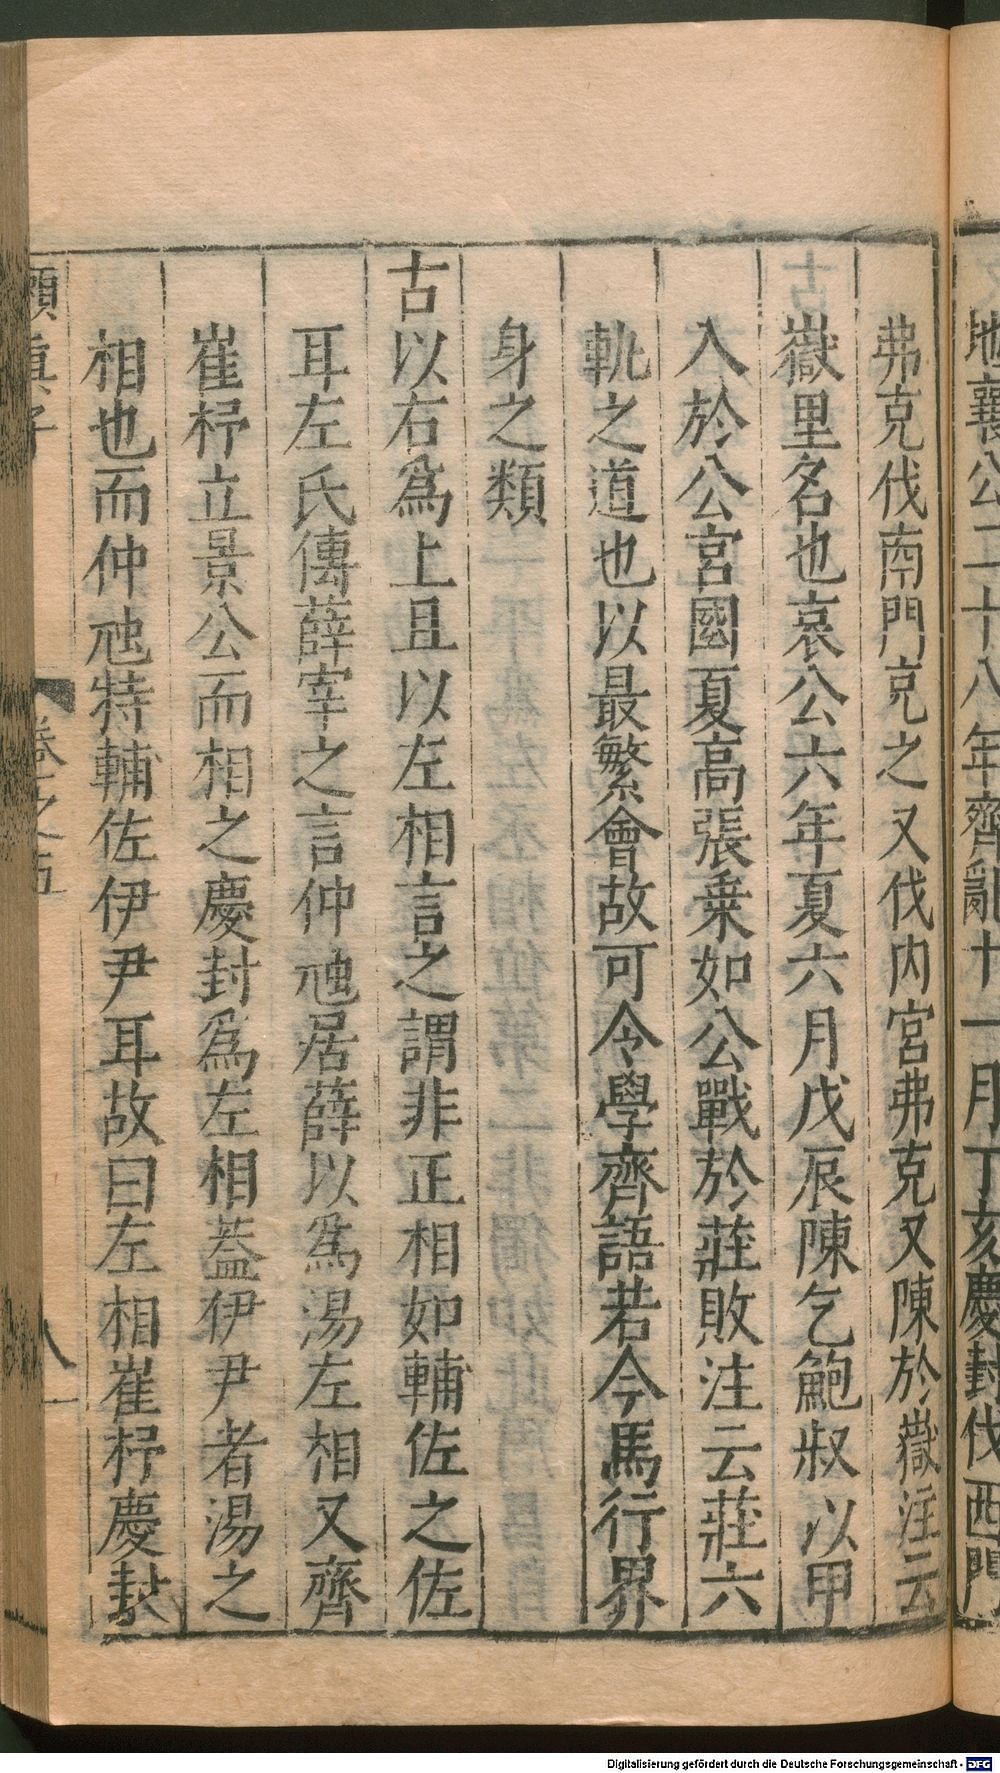 地襄公二十八年齊亂十一月丁亥慶封伐西門
弗克伐南門克之又伐內宮弗克又陳於嶽注云
嶽里名也哀公六年夏六月戊辰陳乞鮑叔以甲
入於公宮國夏高張乗如公戰於莊敗注云莊六
軌之道也以最繁會故可令學齊語若今馬行界
身之類
古以右爲上且以左相言之謂非正相如輔佐之佐
耳左氏傳薛宰之言仲虺居薛以爲湯左相又齊
崔杼立景公而相之慶封爲左相葢伊尹者湯之
相也而仲虺特輔佐伊尹耳故曰左相崔杼慶封
懶真子
卷之五
八
Digitalisierung gefördert durch die Deutsche Forschungsgemeinschaft - DFG